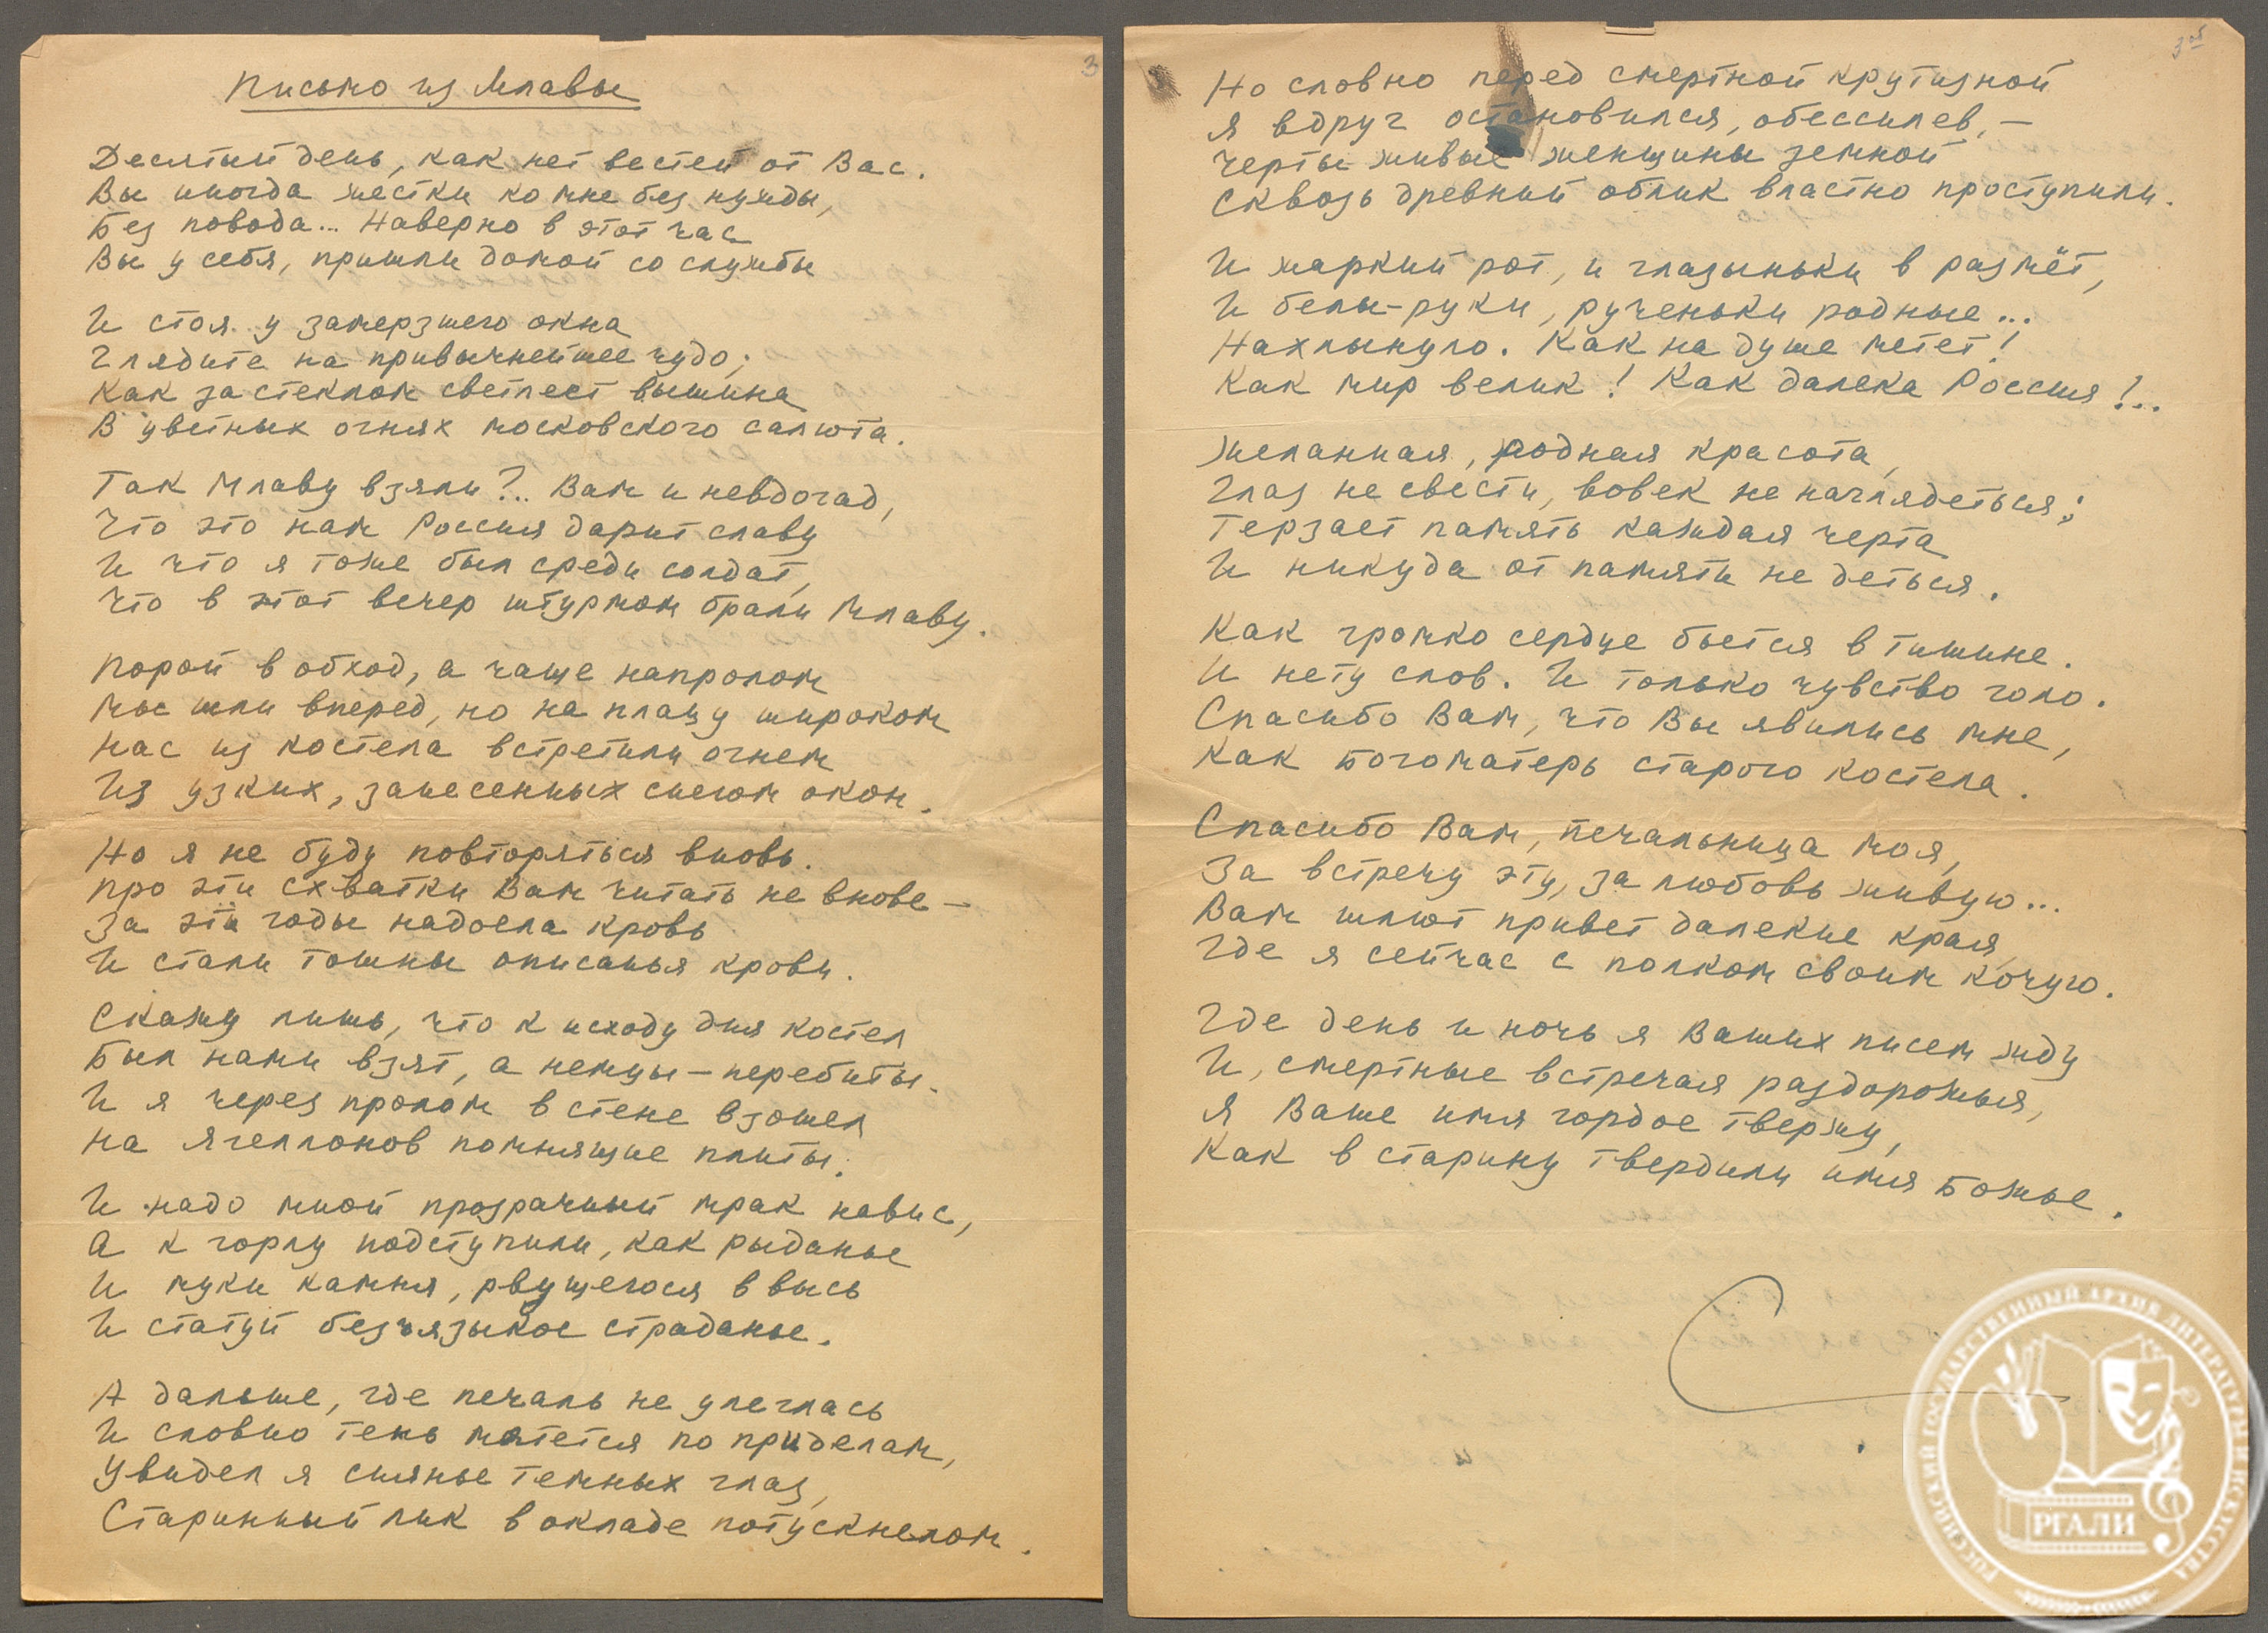 Письмо из Млавы
3
Десятый день, как нет вестей от Вас.
Вы иногда жестки ко мне без нужды,
Без повода... Наверно в этот час
Вы у себя, пришли домой со службы
И стоя у замерзшего окна
Глядите на привычнейшее чудо;
Как за стеклом светлеет вышина
В цветных огнях московского салюта.
Так Млаву взяли?.. Вам и невдогад,
Что это нам Россия дарит славу
И что я тоже был среди солдат,
Что в этот вечер штурмом брали Млаву.
Порой в обход, а чаще напролом
Мы шли вперед, но на плацу широком
Нас из костела встретили огнем
Из узких, занесенных снегом окон.
Но я не буду повторяться вновь.
Про эти схватки Вам читать не внове —
За эти годы надоела кровь
И стали тошны описанья крови.
Скажу лишь, что к исходу дня костел
Был нами взят, а немцы — перебиты.
И я через пролом в стене взошел
На Ягеллонов помнящие плиты.
И надо мной прозрачный мрак навис,
А к горлу подступили, как рыданье
И муки камня, рвущегося ввысь
И статуй безъязыкое страданье.
А дальше, где печаль не улеглась
И словно тень мятется по приделам,
Увидел я сиянье темных глаз,
Старинный лик в окладе потускнелом.
3 об
Но словно перед смертной крутизной
Я вдруг остановился, обессилев, —
Черты живые женщины земной
Сквозь древний облик властно проступили.
И жаркий рот, и глазыньки в размёт,
И белы-руки, рученьки родные...
Нахлынуло. Как на душе метет!
Как мир велик! Как далека Россия!..
Желанная, родная красота,
Глаз не свести, вовек не наглядеться;
Терзает память каждая черта
И никуда от памяти не деться.
Как громко сердце бьется в тишине.
И нету слов. И только чувство голо.
Спасибо Вам, что Вы явились мне,
Как Богоматерь старого костела.
Спасибо Вам, печальница моя,
За встречу эту, за любовь живую...
Вам шлют привет далекие края,
Где я сейчас с полком своим кочую.
Где день и ночь я Ваших писем жду
И, смертные встречая раздорожья,
Я Ваше имя гордое твержу,
Как в старину твердили имя Божье.
РОССИЙСКИЙ ГОСУДАРСТВЕННЫЙ АРХИВ ЛИТЕРАТУРЫ И ИСКУССТВА
РГАЛИ